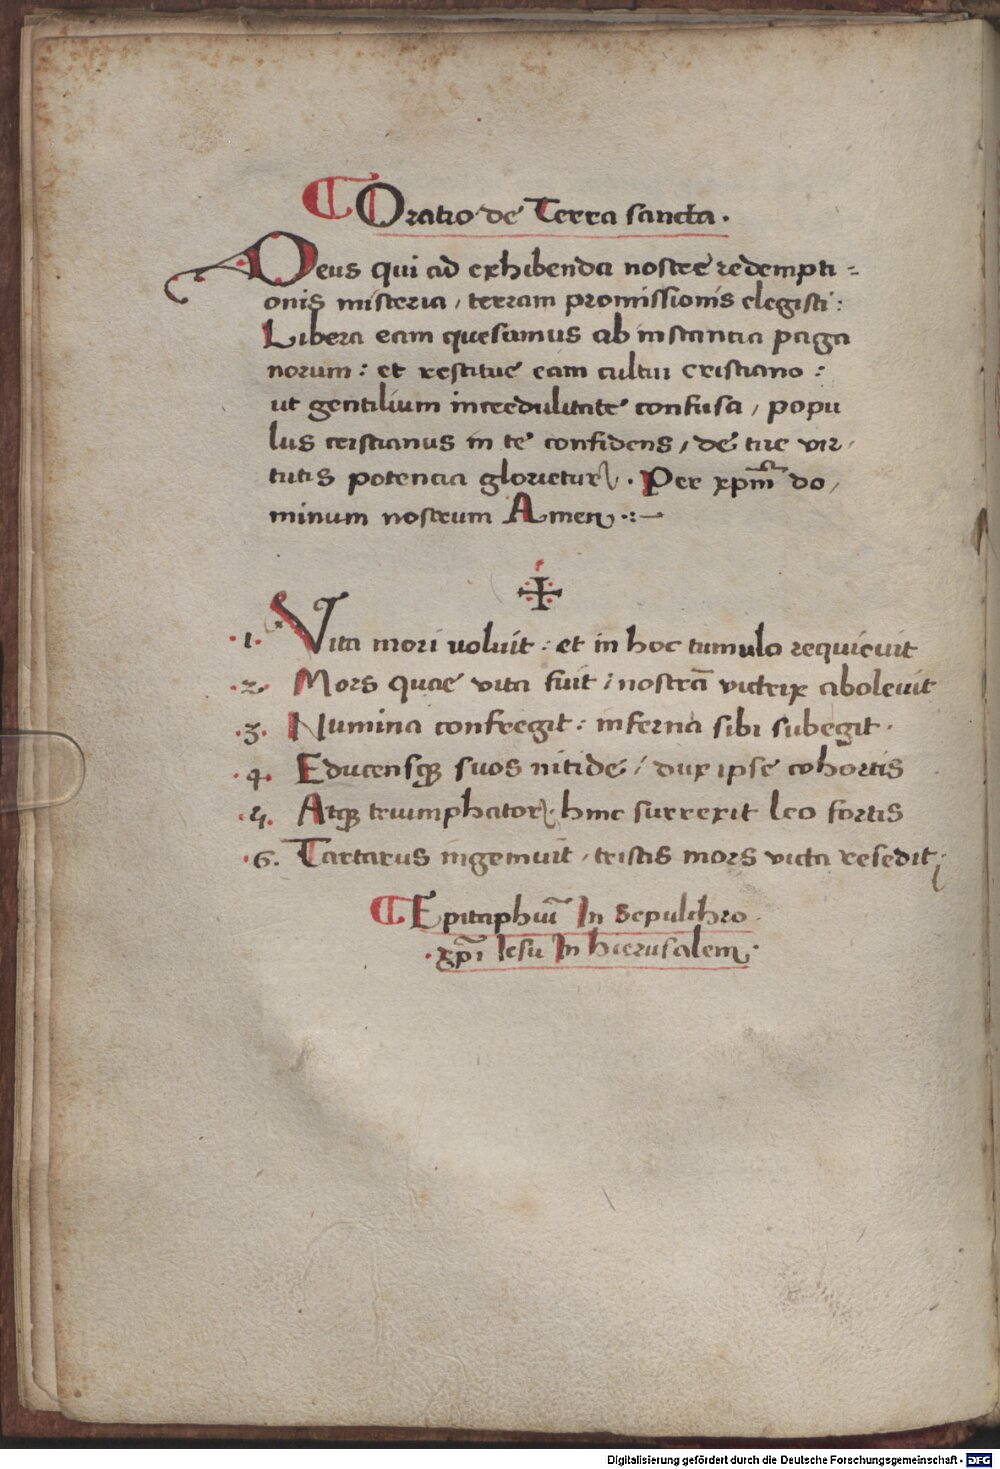 Oratio de Terra sancta.
Deus qui ad exhibenda nostre redempti=
onis misteria, terram promissionis elegisti:
Libera eam quesumus ab instantia paga
norum: et restitue eam cultui cristiano:
ut gentilium incredulitate confusa, popu
lus cristianus in te confidens, de tue vir,
tutis potencia glorietur. Per xp̄m do,
minum nostrum Amen.:—
.1. Vita mori voluit: et in hoc tumulo requievit
.2. Mors quae vita fuit: nostrā victrix abolevit
.3. Numina confregit: inferna sibi subegit.
.4. Educensqꝫ suos nitide, dux ipse cohortis
.5. Atqꝫ triumphator, hinc surrexit leo fortis
.6. Tartarus ingemuit, tristis mors victa resedit;
Epitaphiū In Sepulchro.
.xp̄i Iesu In hierusalem.
Digitalisierung gefördert durch die Deutsche Forschungsgemeinschaft - DFG